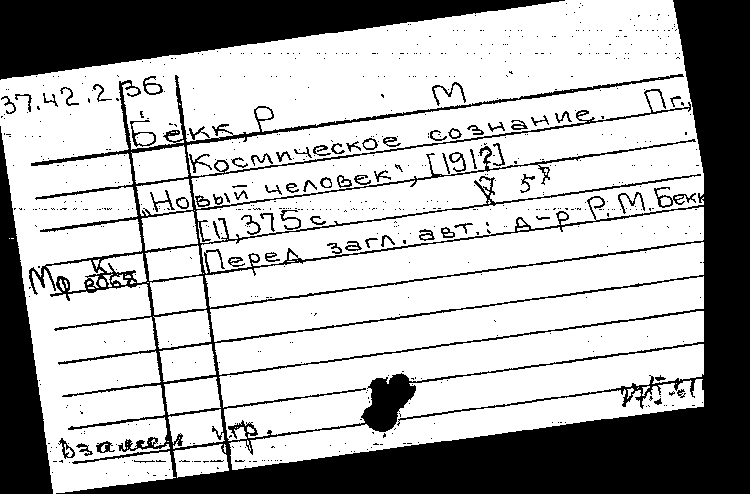 37.42.2.36
Бёкк, Р М
Космическое сознание. Пг.,
„Новый человек", [191?].
[1], 375 с.
Перед загл. авт.: д-р Р. М. Бекк
Мф К1
8068
Взамен утр.